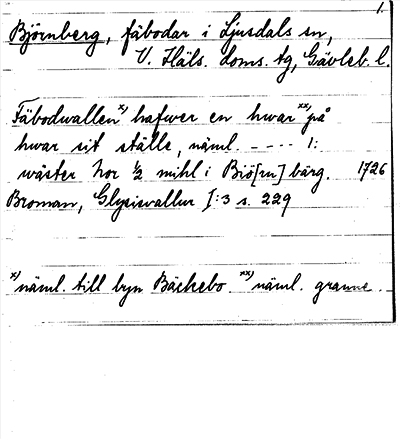 1.
Björnberg, fäbodar i Ljusdals sn,
V. Häls. doms. tg, Gävleb. l.
Fäbodwallen x) hafwer en hwar xx) på
hwar sit ställe, näml. ---- 1:
wäster hor ½ mihl i Biö[rn]bärg. 1726
Broman, Glysisvallur I:3 s. 229
x) näml. till byn Bäckebo. xx) näml. granne.